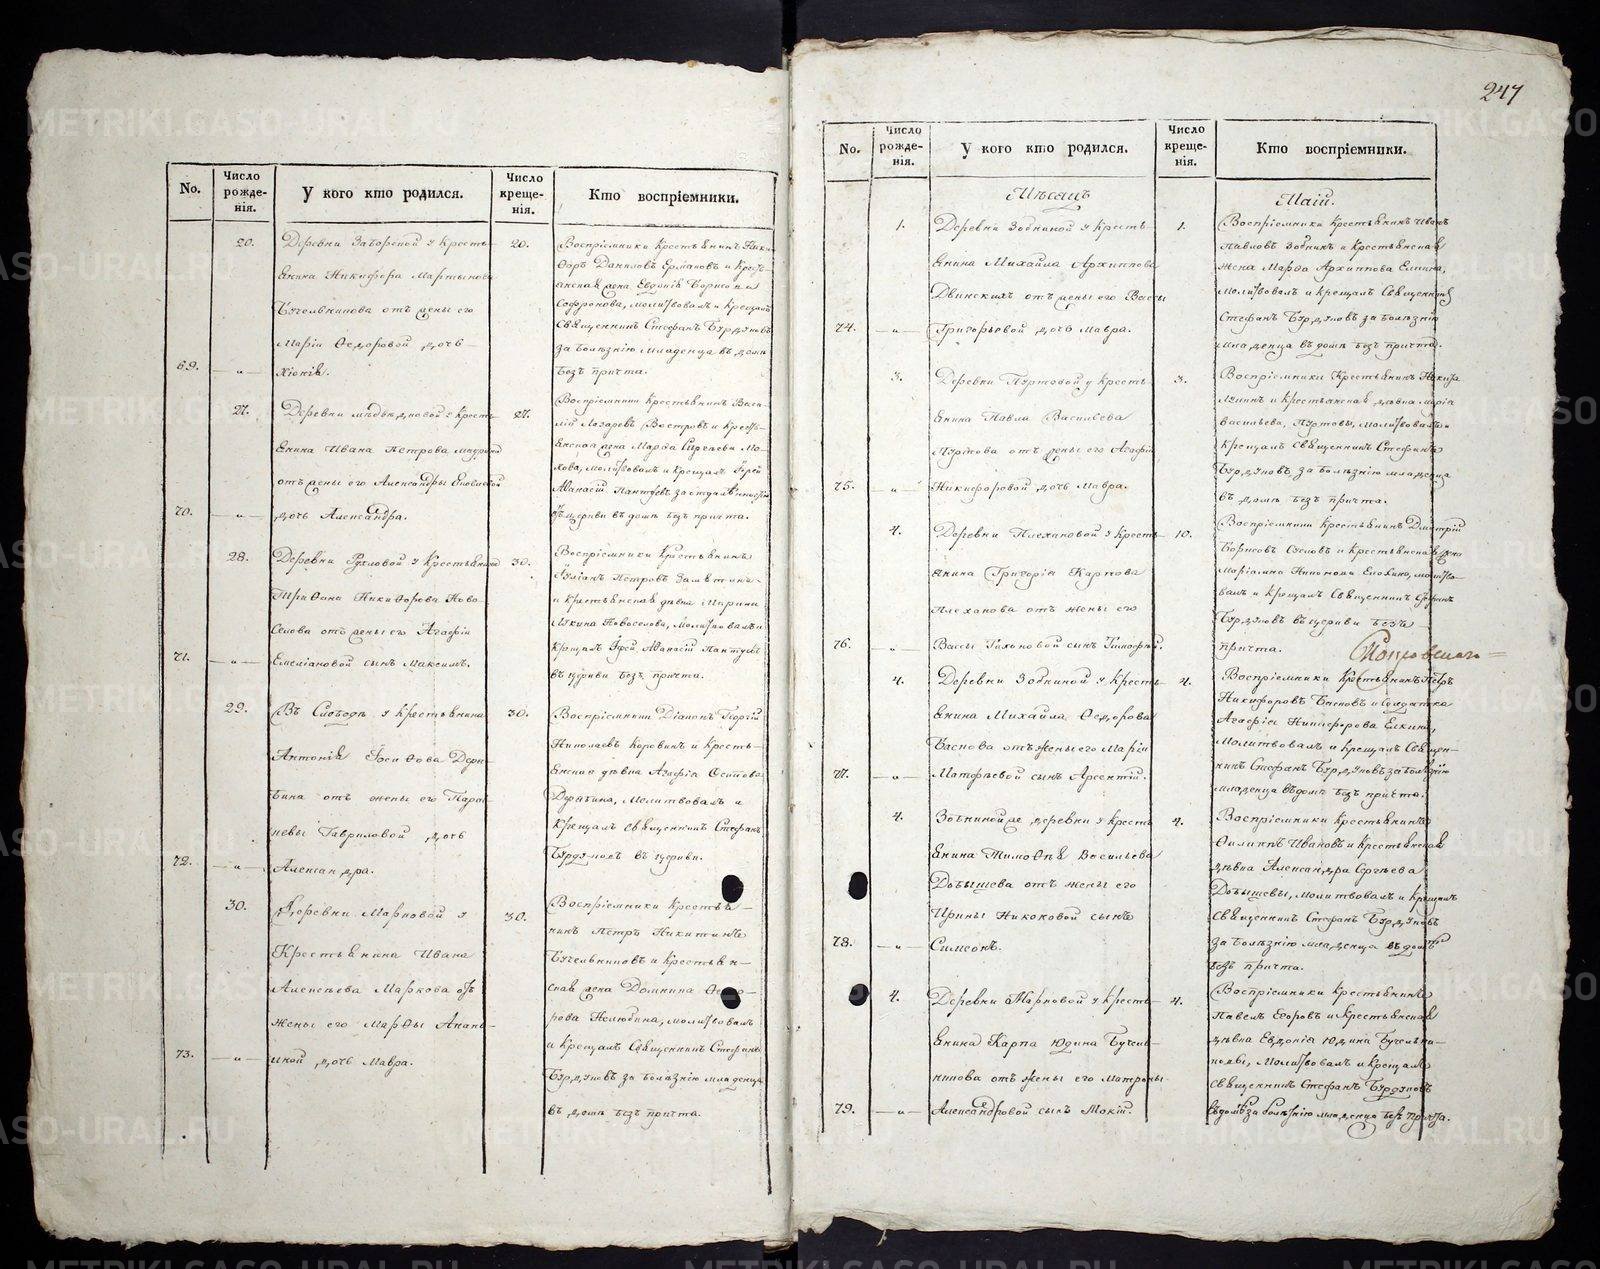 No.
Число рожде-нія.
У кого кто родился.
Число креще-нія.
Кто воспріемники.
20.
Деревни Заборской у кресть-
янина Никифора Мартынова
отъ жены его
Маріи Ѳедоровой дочь
69. — „ — Хіонія.
20.
Воспріемники крестьянинъ Ники-
форъ Даниловъ Ермаковъ и кресть-
янская жена Евдокія Борисова
Софронова, молитвовалъ и крещалъ
священникъ Стефанъ Бурдуковъ
за болѣзнію младенца въ домѣ
безъ причта.
27.
Деревни у кресть-
янина Ивана Петрова
отъ жены его Александры Яковлевой
70. — „ — дочь Александра.
27.
Воспріемники крестьянинъ Васи-
лій Лазаревъ Востровъ и кресть-
янская жена Марѳа
молитвовалъ и крещалъ Іерей
Аѳанасій Пантуевъ за отдаленностію
церкви въ домѣ безъ причта.
28.
Деревни Рухловой у крестьянина
Трифана Никифорова Ново-
селова отъ жены его Агафіи
71. — „ — Емеліановой сынъ Максимъ.
30.
Воспріемники крестьянинъ
Іуліанъ Петровъ
и крестьянская дѣвка Ирина
Новоселова, молитвовалъ и
крещалъ Іерей Аѳанасій Пантуевъ
въ церкви безъ причта.
29.
Въ Слободѣ у крестьянина
Антонія Іосифова Деря-
бина отъ жены его Парас-
кевы Гавриловой дочь
72. — „ — Александра.
30.
Воспріемники Діаконъ Георгій
Николаевъ Коровинъ и кресть-
янская дѣвка Агафія Осипова
Дерябина, молитвовалъ и
крещалъ священникъ Стефанъ
Бурдуковъ въ церкви.
30.
Деревни Марковой у
крестьянина Ивана
Алексѣева Маркова отъ
жены его Марѳы Анань-
73. — „ — иной дочь Мавра.
30.
Воспріемники крестья-
нинъ Петръ Никитинъ
и крестьян-
ская жена Домнина Ѳедо-
рова Нелюбина, молитвовалъ
и крещалъ священникъ Стефанъ
Бурдуковъ за болѣзнію младенца
въ домѣ безъ причта.
247
No.
Число рожде-нія.
У кого кто родился.
Число креще-нія.
Кто воспріемники.
Мѣсяцъ Маій.
1.
Деревни Зобниной у кресть-
янина Михайла Архиппова
Двинскихъ отъ жены его Вассы
74. — „ — Григорьевой дочь Мавра.
1.
Воспріемники крестьянинъ Иванъ
Павловъ Зобнинъ и крестьянская
жена Марѳа Архиппова Елкина,
молитвовалъ и крещалъ священникъ
Стефанъ Бурдуковъ за болѣзнію
младенца въ домѣ безъ причта.
3.
Деревни Пуртовой у кресть-
янина Павла Васильева
Пуртова отъ жены его Агафіи
75. — „ — Никифоровой дочь Мавра.
3.
Воспріемники крестьянинъ Никифоръ
и крестьянская дѣвка Марія
Васильева, Пуртовы, молитвовалъ и
крещалъ священникъ Стефанъ
Бурдуковъ за болѣзнію младенца
въ домѣ безъ причта.
4.
Деревни Плехановой у кресть-
янина Григорія Карпова
Плеханова отъ жены его
76. — „ — Вассы Тихоновой сынъ Тимофей.
10.
Воспріемники крестьянинъ Дмитрій
Борисовъ Сусловъ и крестьянская жена
Маріамна молитво-
валъ и крещалъ священникъ Стефанъ
Бурдуковъ въ церкви безъ
причта.
4.
Деревни Зобниной у кресть-
янина Михайла Ѳедорова
Баснова отъ жены его Маріи
77. — „ — Матѳѣевой сынъ Арсентій.
4.
Воспріемники крестьянинъ Петръ
Никифоровъ Басновъ и солдатка
Агафія Никифорова Елкина,
молитвовалъ и крещалъ священ-
никъ Стефанъ Бурдуковъ за болѣзнію
младенца въ домѣ безъ причта.
4.
Зобниной же деревни у кресть-
янина Тимоѳея Васильева
Добышева отъ жены его
Ирины Никоновой сынъ
78. — „ — Симеонъ.
4.
Воспріемники крестьянинъ
Филиппъ Ивановъ и крестьянская
дѣвка Александра Сергѣева
Добышевы, молитвовалъ и крещалъ
священникъ Стефанъ Бурдуковъ
за болѣзнію младенца въ домѣ
безъ причта.
4.
Деревни Марковой у кресть-
янина Карпа Юдина
отъ жены его Матроны
79. — „ — Александровой сынъ Мокій.
4.
Воспріемники крестьянинъ
Павелъ Егоровъ и крестьянская
дѣвка Евдокія Юдина
молитвовалъ и крещалъ
священникъ Стефанъ Бурдуковъ
въ домѣ за болѣзнію младенца безъ причта.